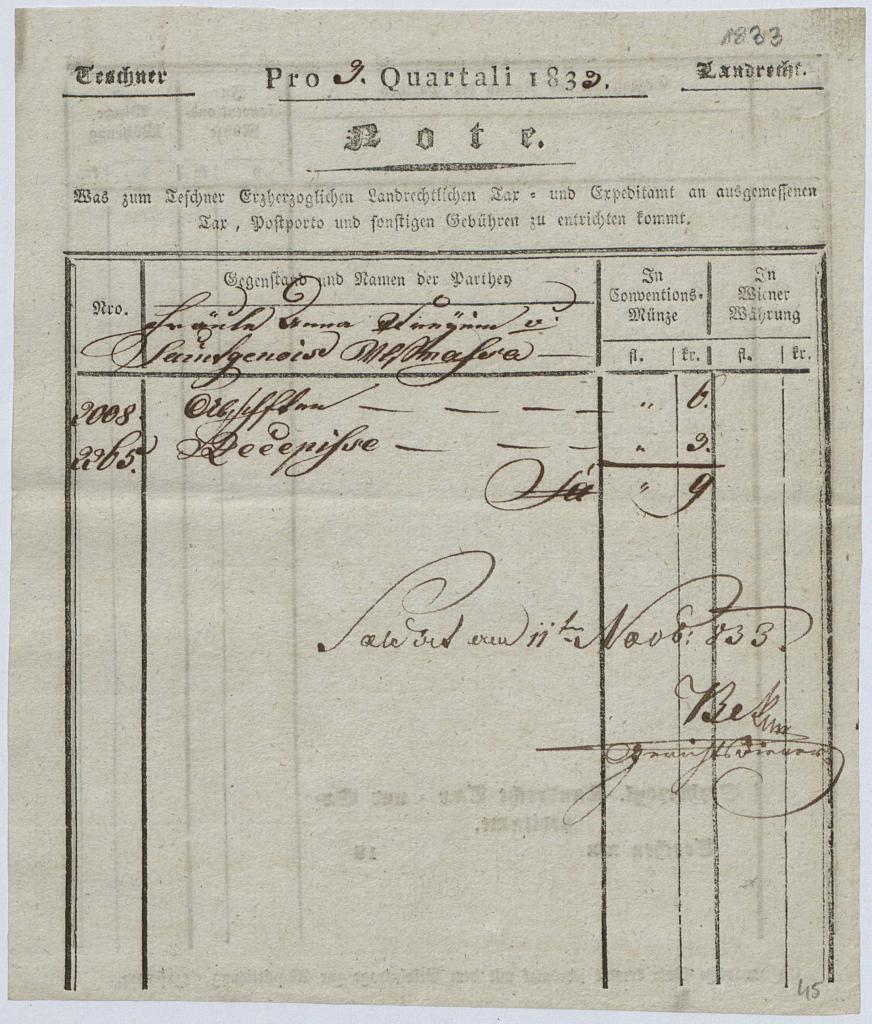 1833
Teschner Pro 3. Quartali 1833. Landrecht.
Note.
Was zum Teschner Erzherzoglichen Landrechtlichen Tax- und Expeditamt an ausgemessenen
Tax, Postporto und sonstigen Gebühren zu entrichten kommt.
Nro.
Gegenstand und Namen der Parthey
In Conventions-Münze
In Wiener Währung
fl. kr. fl. kr.
Fräule Anna v:
Saintgenois
2008. — — — — " 6.
2265. Recepisse — — — " 3.
Sa " 9
den 11ten Novb: 833.
Gerichtsdiener
45